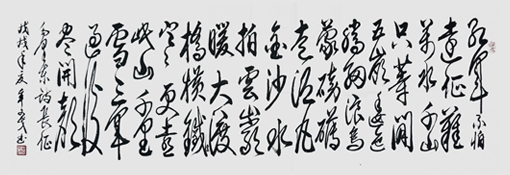 红军不怕
遠征難
萬水千山
只等閒
五嶺逶迤
騰細浪烏
蒙磅礴
走泥丸
金沙水
拍雲巖
暖大渡
橋橫鐵
寒更喜
岷山千里
雪三軍
過後
盡開顏
毛澤東詩長征
戊戌年夏書